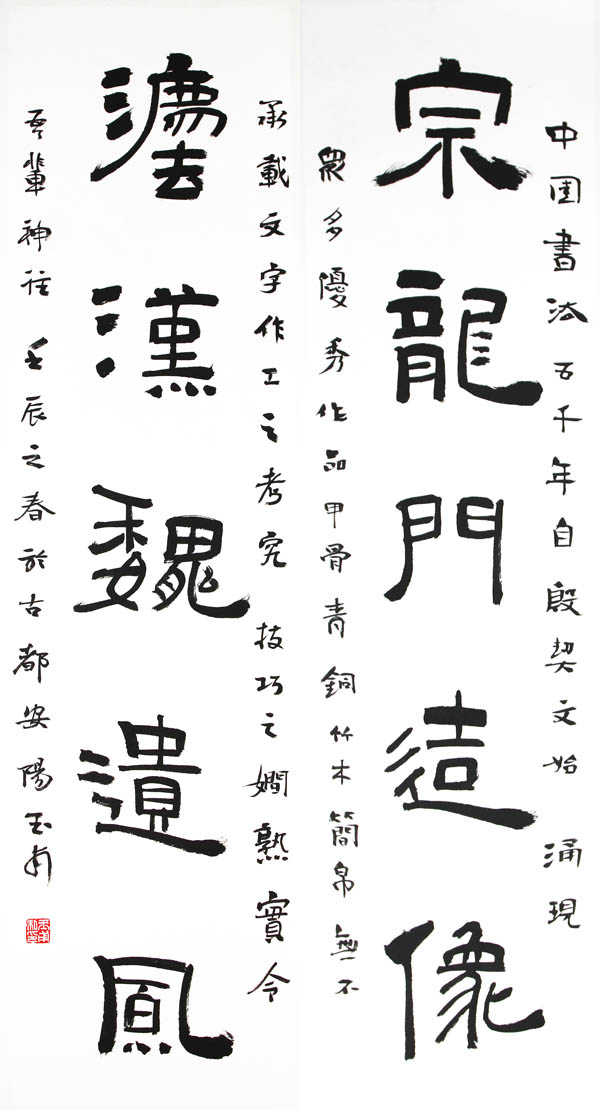 中国書法五千年自殷契文始 涌現
宗龍門造像
眾多優秀作品甲骨青銅竹木簡帛無不
承載文字作工之考究 技巧之嫻熟實令
灋漢魏遺風
吾輩神往 壬辰之春於古都安陽玉甫